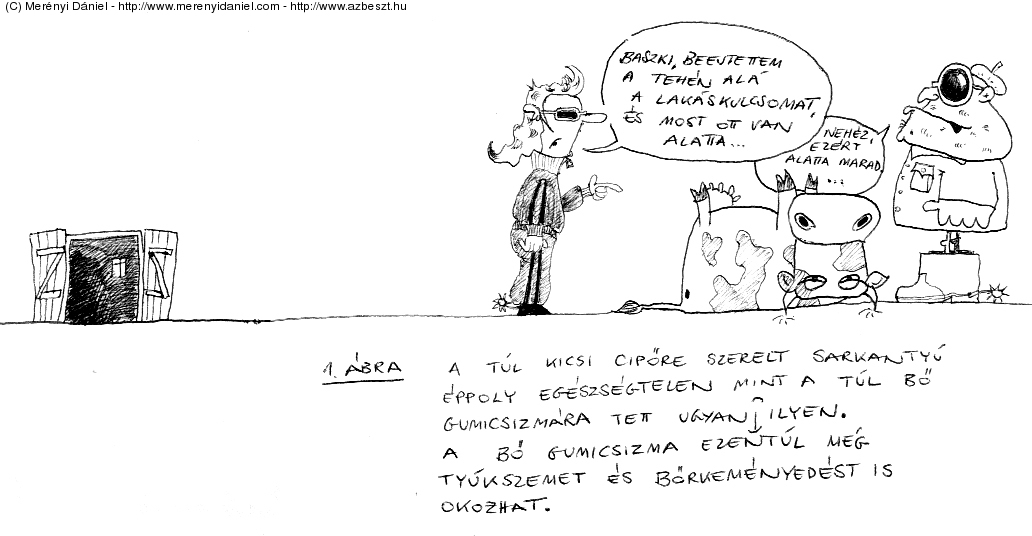 (C) Merényi Dániel - http://www.merenyidaniel.com - http://www.azbeszt.hu
BASZKI, BEEJTETTEM
A TEHÉN ALÁ
A LAKÁSKULCSOMAT,
ÉS MOST OTT VAN
ALATTA...
NEHÉZ,
EZÉRT
ALATTA MARAD.
...
1. ÁBRA
A TÚL KICSI CIPŐRE SZERELT SARKANTYÚ
ÉPPOLY EGÉSZSÉGTELEN MINT A TÚL BŐ
GUMICSIZMÁRA TETT UGYANILYEN.
A BŐ GUMICSIZMA EZENTÚL MÉG
TYÚKSZEMET ÉS BŐRKEMÉNYEDÉST IS
OKOZHAT.